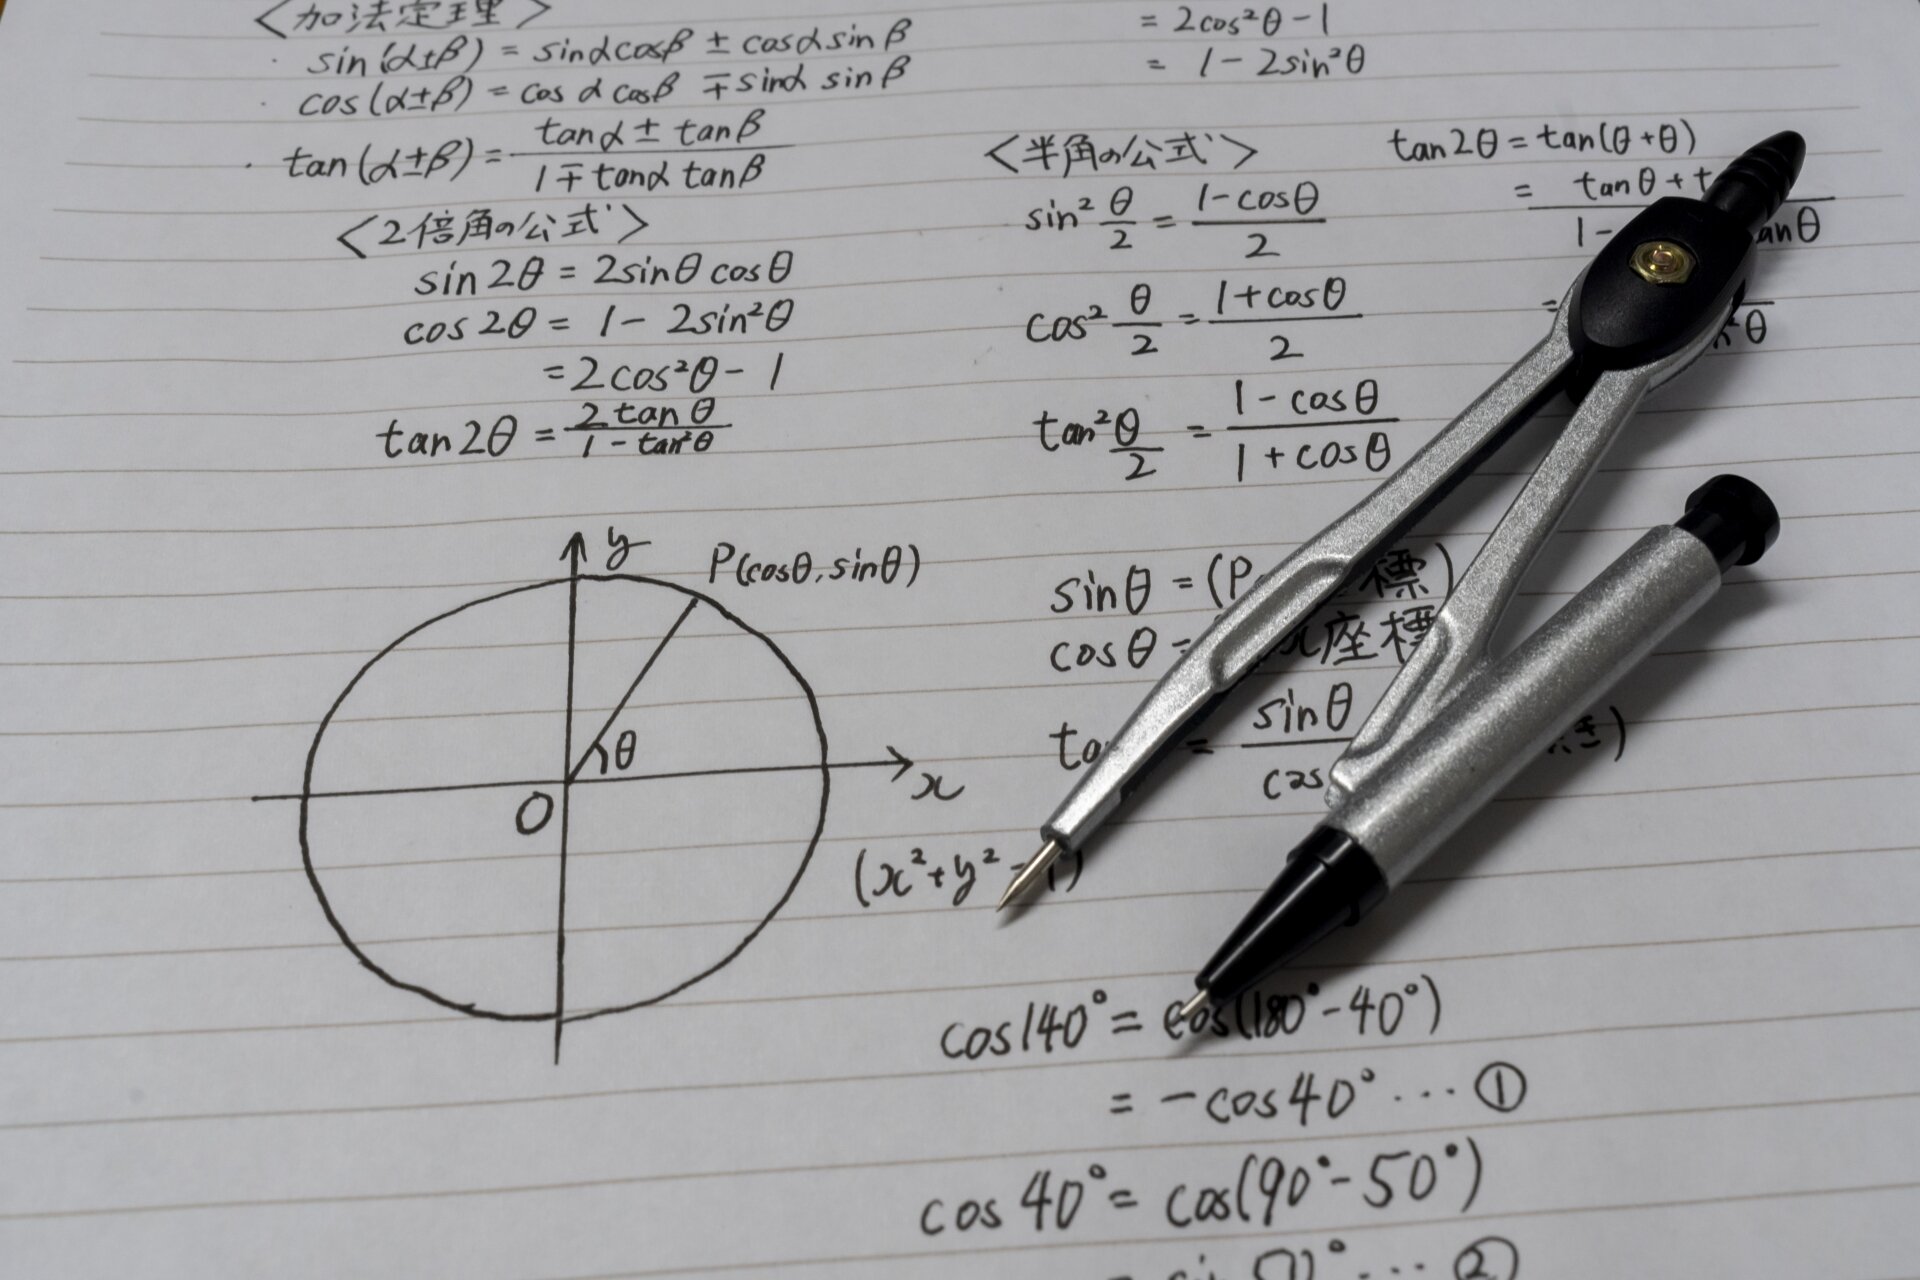 <加法定理>
・sin(α±β) = sinαcosβ ± cosαsinβ
・cos(α±β) = cosαcosβ ∓ sinα sinβ
・tan(α±β) = (tanα ± tanβ)/(1 ∓ tanα tanβ)
<2倍角の公式>
sin2θ = 2sinθ cosθ
cos2θ = 1 - 2sin²θ
= 2cos²θ - 1
tan2θ = (2tanθ)/(1 - tan²θ)
= 2cos²θ - 1
= 1 - 2sin²θ
<半角の公式>
sin² θ/2 = (1-cosθ)/2
cos² θ/2 = (1+cosθ)/2
tan² θ/2 = (1-cosθ)/(1+cosθ)
tan2θ = tan(θ+θ)
= tanθ + t
1- anθ
=
²θ
y
P(cosθ, sinθ)
θ
O
x
(x²+y²=1)
sinθ = (P 標)
cosθ = x座標
ta = sinθ/cos き)
cos140° = cos(180°-40°)
= -cos40° … ①
cos40° = cos(90°-50°)
= sin50° … ②